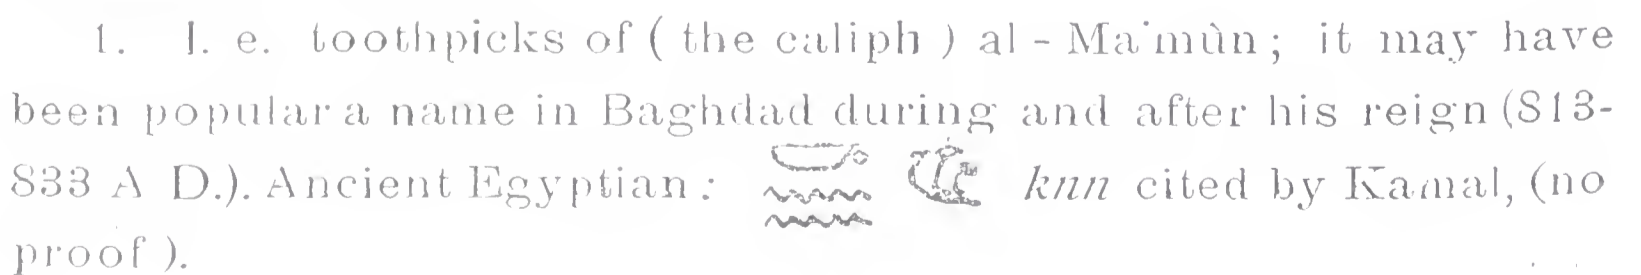 1. I. e. toothpicks of ( the caliph ) al - Ma'mùn ; it may have
been popular a name in Baghdad during and after his reign (813-
833 A D.). Ancient Egyptian : knn cited by Kamal, (no
proof ).